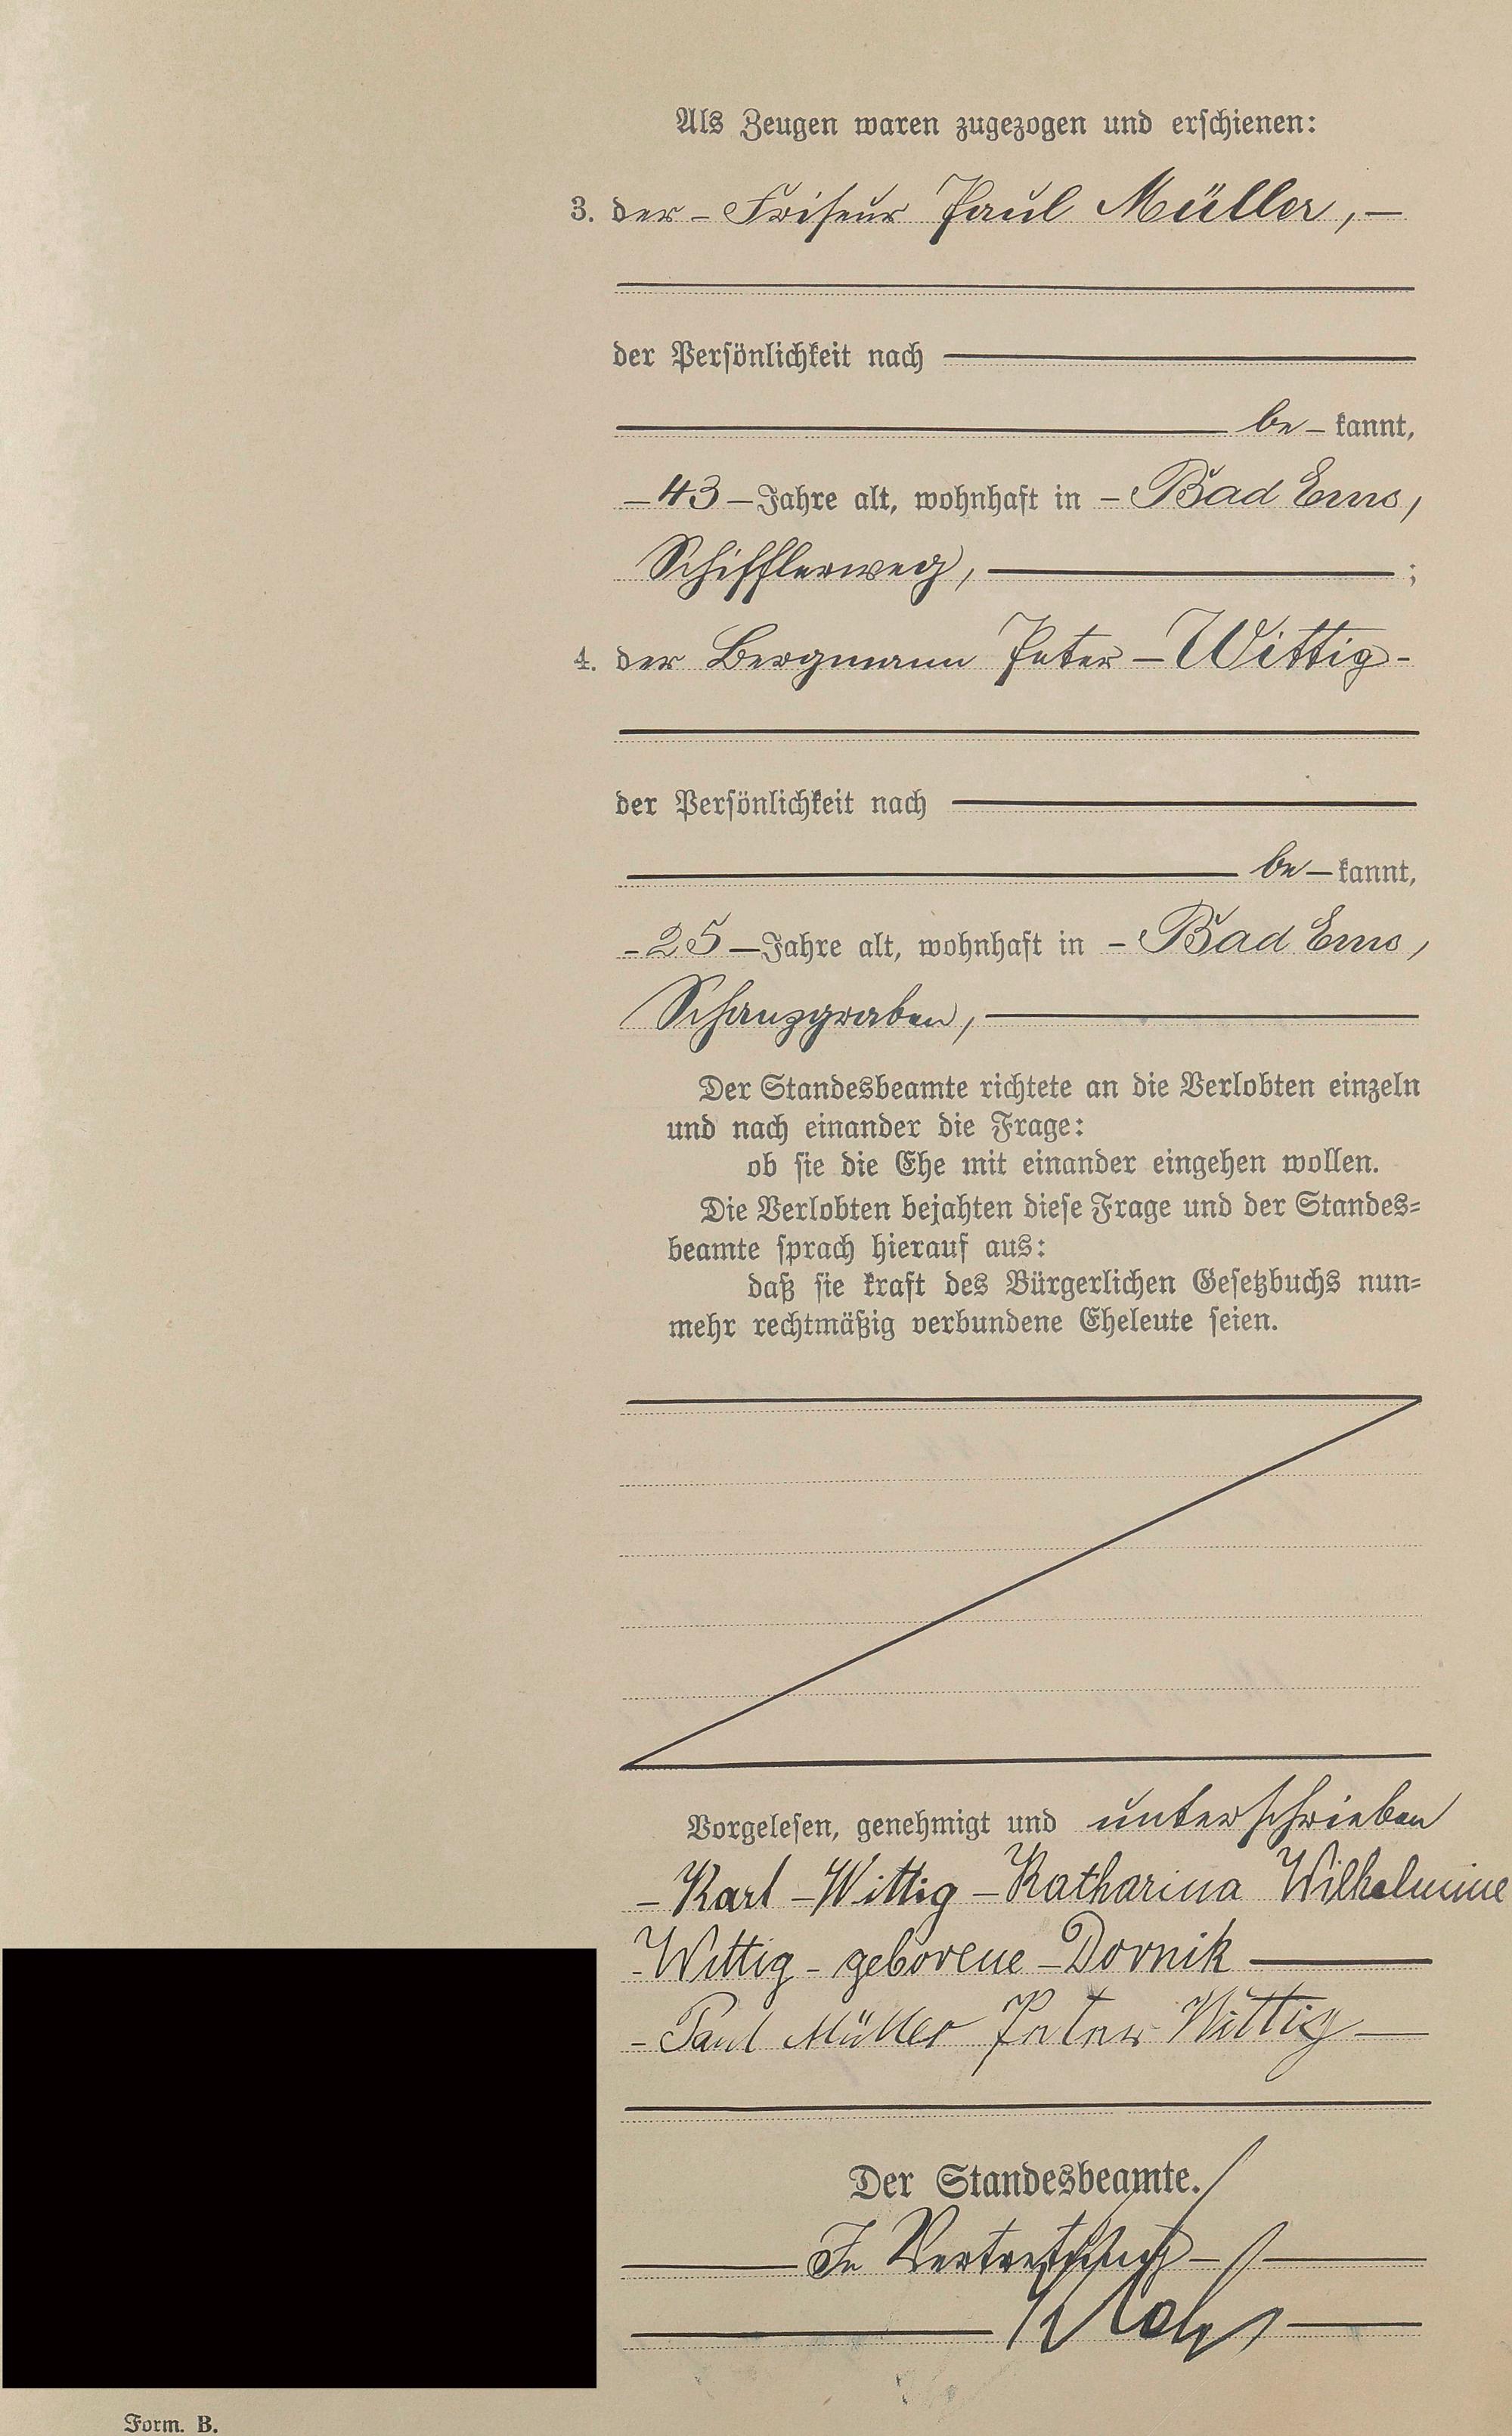 Als Zeugen waren zugezogen und erschienen:
3. der – Friseur Paul Müller, –
der Persönlichkeit nach
be – kannt,
– 43 – Jahre alt, wohnhaft in – Bad Ems,
Schifflerweg, ;
4. der Bergmann Peter – Wittig –
der Persönlichkeit nach
be – kannt,
– 25 – Jahre alt, wohnhaft in – Bad Ems,
Schanzgraben,
Der Standesbeamte richtete an die Verlobten einzeln
und nach einander die Frage:
ob sie die Ehe mit einander eingehen wollen.
Die Verlobten bejahten diese Frage und der Standes-
beamte sprach hierauf aus:
daß sie kraft des Bürgerlichen Gesetzbuchs nun-
mehr rechtmäßig verbundene Eheleute seien.
Vorgelesen, genehmigt und unterschrieben
– Karl – Wittig – Katharina Wilhelmine
– Wittig – geborene – Dornik
– Paul Müller Peter Wittig –
Der Standesbeamte.
In Vertretung
Form. B.